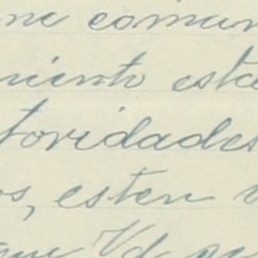 me comun
miento este
toridades
os, esten v
que Vd pu